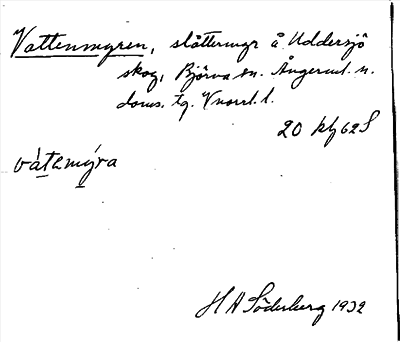 Vattenmyren, slåttermyr å Uddersjö
skog, Björna sn. Ångerml. n.
doms. tg. Vnorrl. l.
20 kf 62 S
vátemýra
H A Söderberg 1932